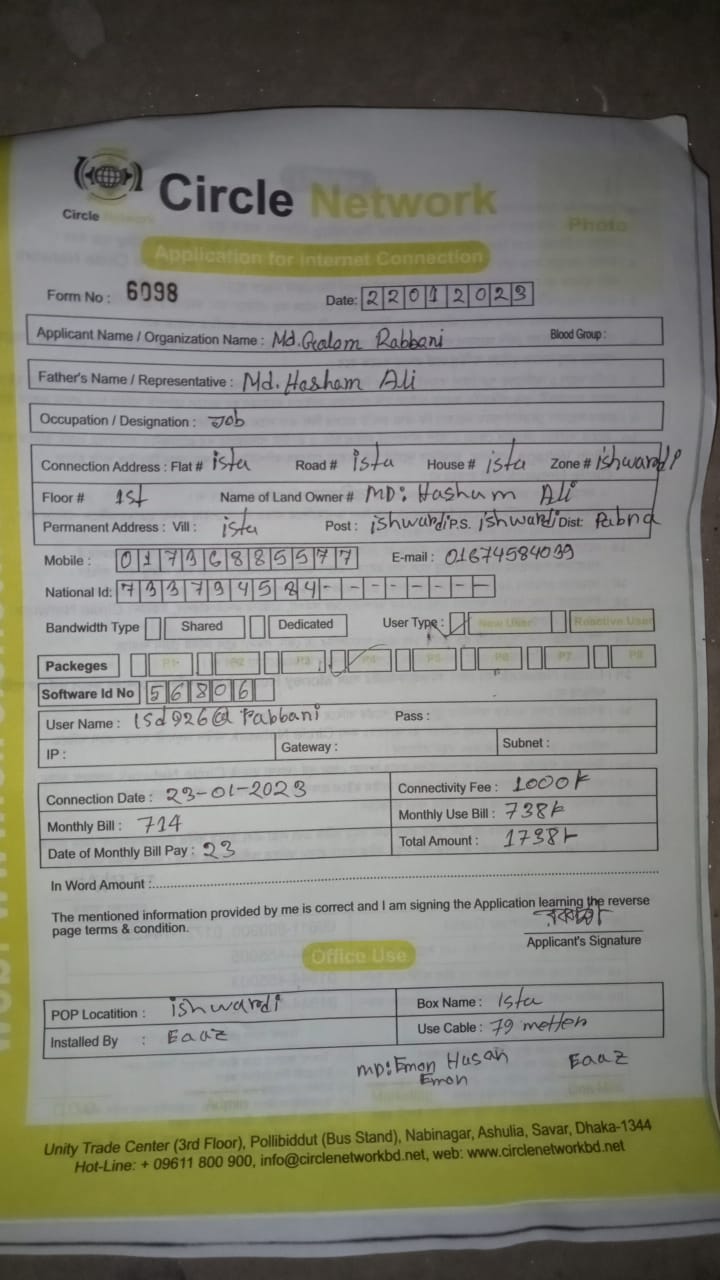 Circle Network
Circle Network
Photo
Application for Internet Connection
Form No : 6098 Date: 22012023
Applicant Name / Organization Name : Md. Golam Rabbani Blood Group :
Father's Name / Representative : Md. Hasham Ali
Occupation / Designation : Job
Connection Address : Flat # ista Road # ista House # ista Zone # ishwardi
Floor # 1st Name of Land Owner # MD: Hashum Ali
Permanent Address : Vill : ista Post : ishwardi P.S. ishwardi Dist: Pabna
Mobile : 01736885577 E-mail : 01674584039
National Id: 733794584-------
Bandwidth Type Shared Dedicated User Type : New User Reactive User
Packeges P1 P2 P3 P4 P5 P6 P7 P8
Software Id No 56806
User Name : Pass :
IP : Gateway : Subnet :
Connection Date : 23-01-2023 Connectivity Fee : 1000/-
Monthly Bill : 714 Monthly Use Bill : 738/-
Date of Monthly Bill Pay : 23 Total Amount : 1738/-
In Word Amount :
The mentioned information provided by me is correct and I am signing the Application learning the reverse
page terms & condition.
Applicant's Signature
Office Use
POP Locatition : ishwardi Box Name : Ista
Installed By : Eaaz Use Cable : 79 metter
MD: Emon Husan Eaaz
Emon
Unity Trade Center (3rd Floor), Pollibiddut (Bus Stand), Nabinagar, Ashulia, Savar, Dhaka-1344
Hot-Line: + 09611 800 900, info@circlenetworkbd.net, web: www.circlenetworkbd.net